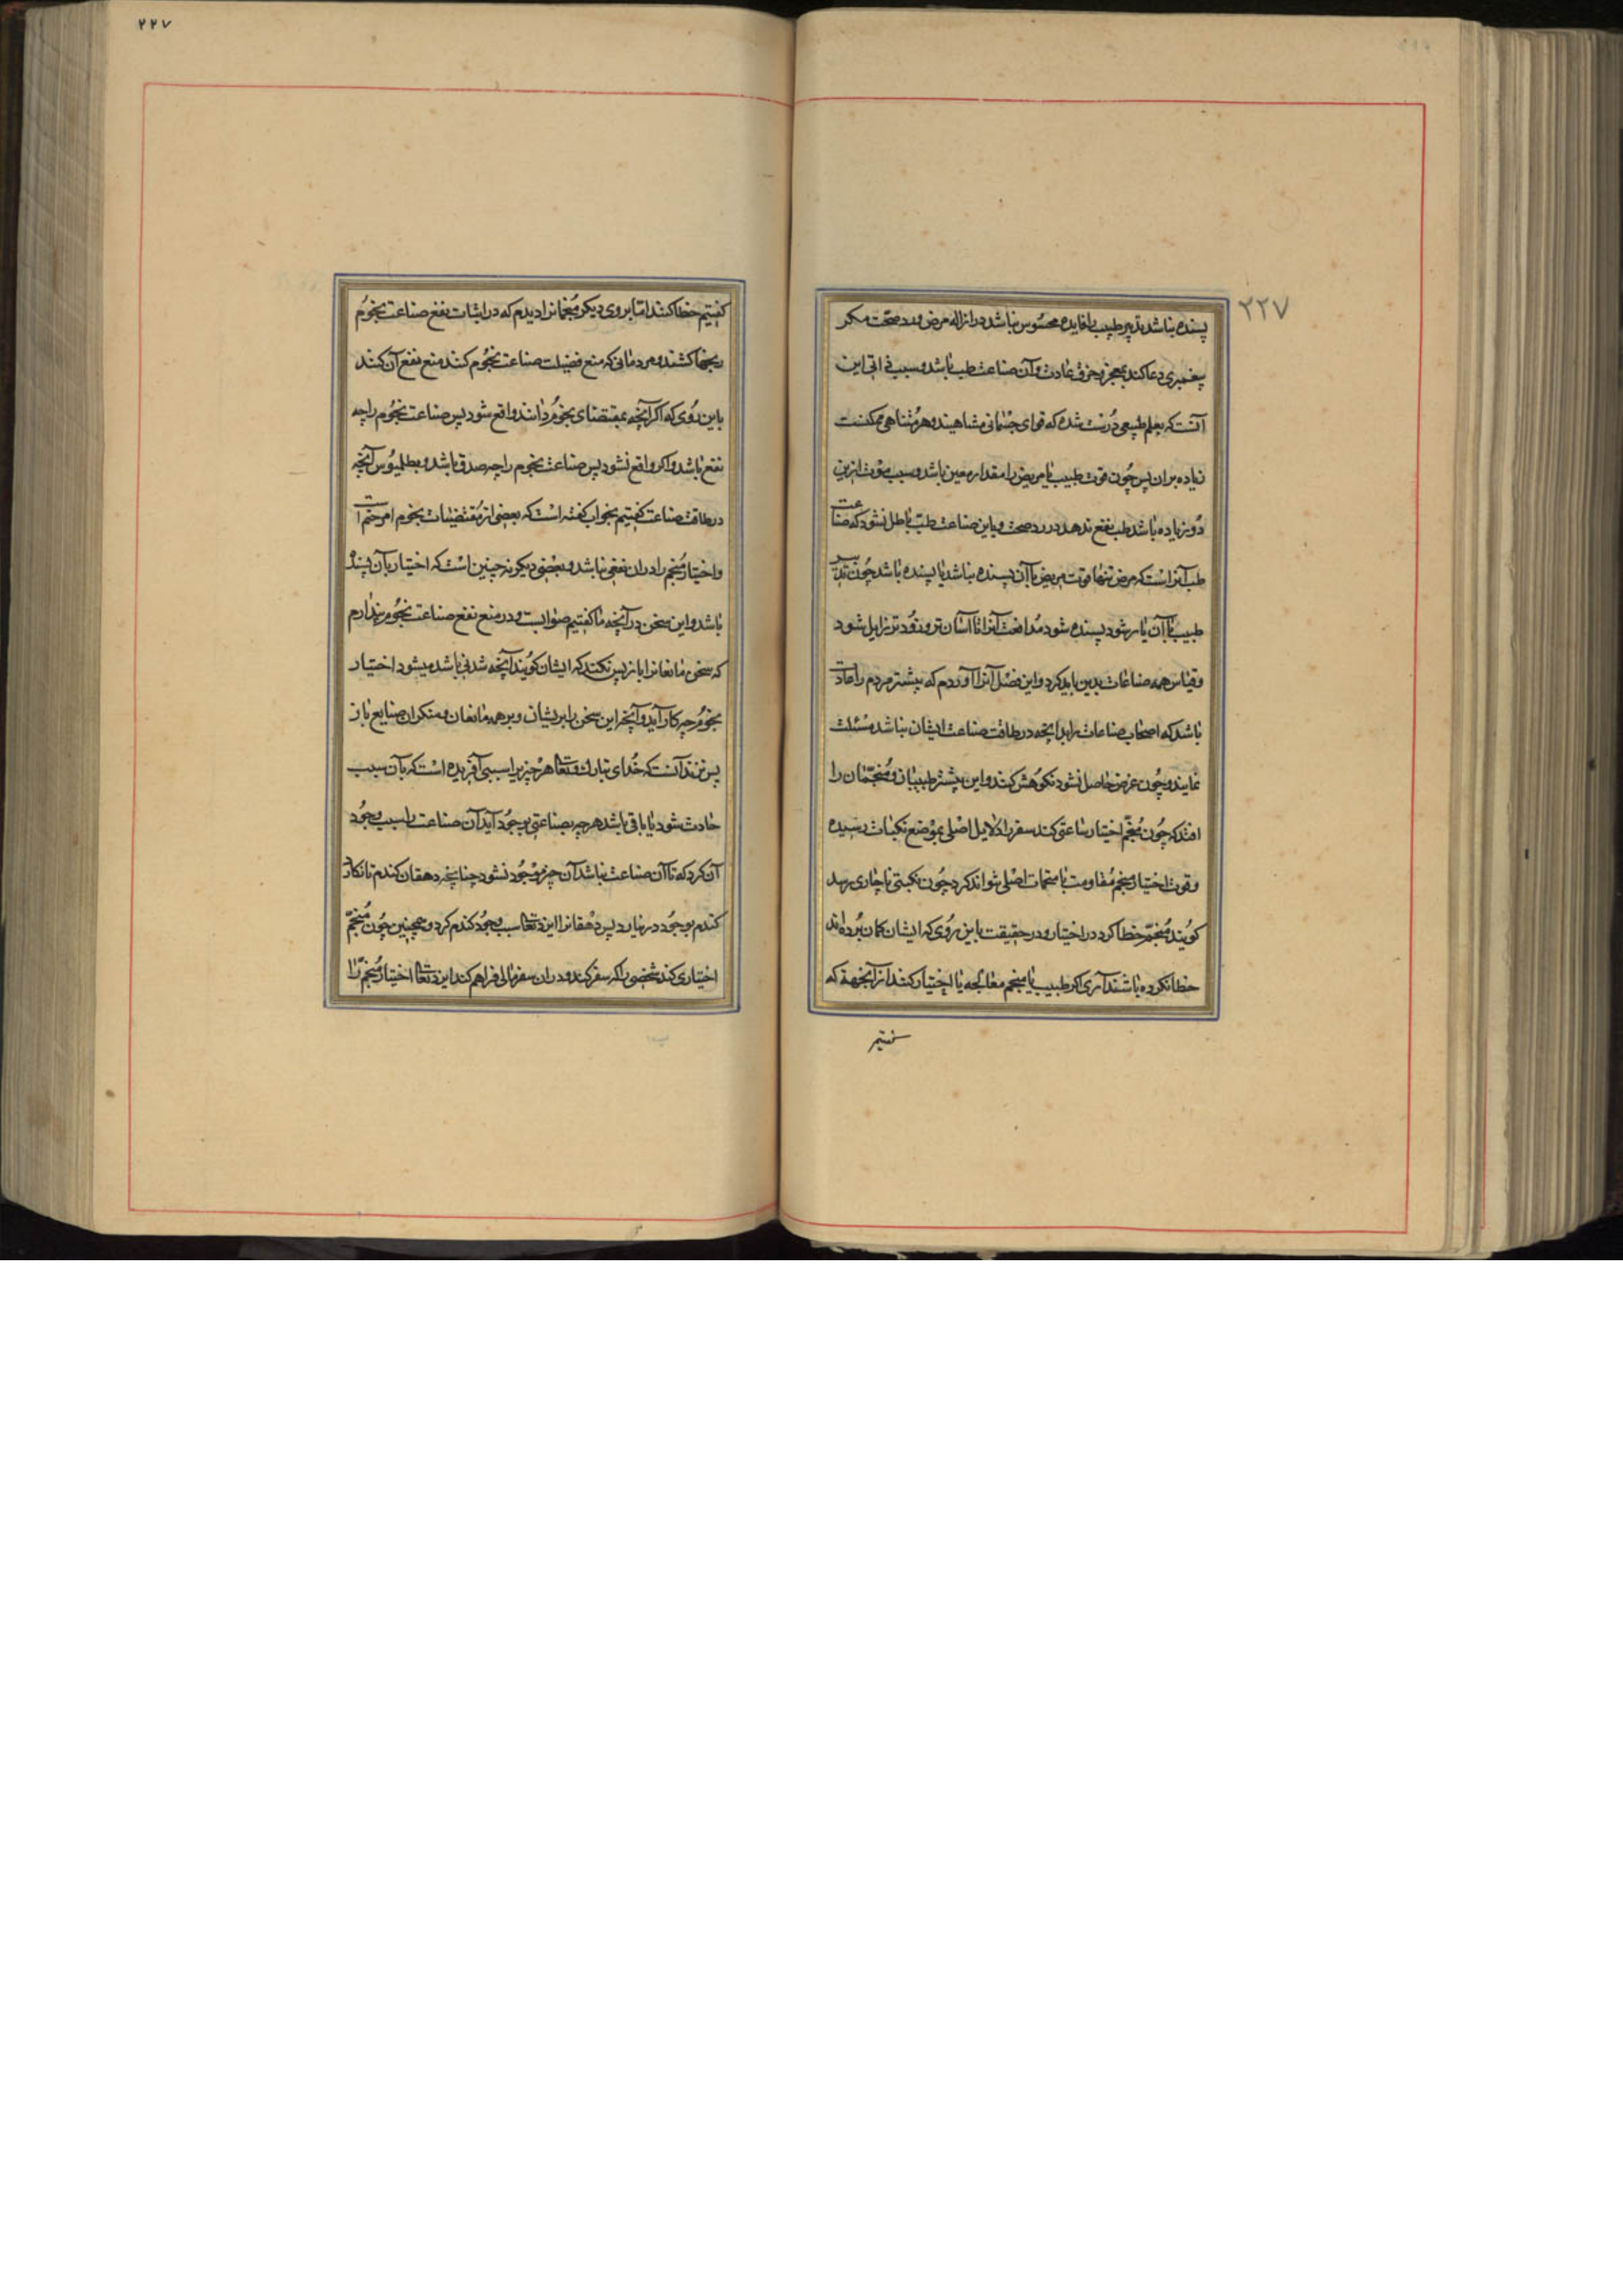 ۲۲۷
پسنده نباشد تدبیر طبیب را فایده محسوس نباشد در ازاله مرض و رد صحّت مکر
پیغمبری دعا کند بمعجز و خرق عادت و آن صناعت طب نباشد و سبب این
آنست که بعلم طبیعی درست شده که قوای جسمانی متناهیند و هر متناهی ممکنست
زیاده بران پس چون قوت طبیب یا مریض را مقدار معین باشد و سبب موت ازین
دو زیاده باشد طب نفع ندهد در رد صحت و باین صناعت طبّ باطل نشود که صناعت
طب آنراست که مرض تنها قوت مریض با آن پسنده نباشد یا پسنده باشد چون تدبیر
طبیب با آن یار شود پسنده شود مدافعت آنرا تا آسان تر و زودتر زایل شود
و قیاس همه صناعات بدین باید کرد و این فصل آنرا آوردم که بیشتر مردم را عادت
باشد که اصحاب صناعات را بدانچه در طاقت صناعت ایشان نباشد مسئلت
نمایند و چون غرض حاصل نشود نکوهش کنند و این بیشتر طبیبان و منجّمان را
افتد که چون منجّم اختیار ساعتی کند سفر را دلایل اصلی بموضع نکبات رسیده
و قوت اختیار منجم مقاومت با اصلی نتواند کرد چون نکبتی ناچاری رسد
کویند منجّم خطا کرد در اختیار و در حقیقت باین روی که ایشان کمان برده اند
خطا نکرده باشند آری اکر طبیب یا منجم معالجه یا اختیار کنند از آنجهة که
کفتیم
۲۲۷
کفتیم خطا کنند اما بروی دیکر منجمانرا دیدم که در اثبات نفع صناعت نجوم
رنجها کشند و مردمانی که منع فضیلت صناعت نجوم کنند منع نفع آن کنند
باین روی که اکر آنچه بمقتضای نجوم دانند واقع شود پس صناعت نجوم را چه
نفع باشد و اکر واقع نشود پس صناعت نجوم را چه صدق باشد و بطلمیوس آنچه
در طاقت صناعت کفتیم بجواب کفته است که بعضی از مقتضیات نجوم امر حتم است
و اختیار منجم را دران نفعی نباشد و بعضی دیکر نه چنین است که اختیار بآن پسنده
باشد و این سخن در آنچه ما کفتیم صوابست و در منع نفع صناعت نجوم پندارم
که سخن مانعانرا باز پس نکند که ایشان کویند آنچه شدنی باشد میشود اختیار
نجوم چه کار آید و آنچه این سخن را بر ایشان و بر همه مانعان و منکران صنایع باز
پس زند آنست که خدای تبارک و تعالی هر چیز را سببی آفریده است که بآن سبب
حادث شود یا باقی باشد هر چه بصناعتی بوجود آید آن صناعت را سبب وجود
آن کرد که تا آن صناعت نباشد آن چیز موجود نشود چنانچه دهقان کندم تا نکارد
کندم بوجود در نیارد پس دهقانرا ایزد تعالی سبب وجود کندم کرد و همچنین چون منجّم
اختیاری کند شخصی را که سفر کند و دران سفر مالی فراهم کند ایزد تعالی اختیار منجّم را